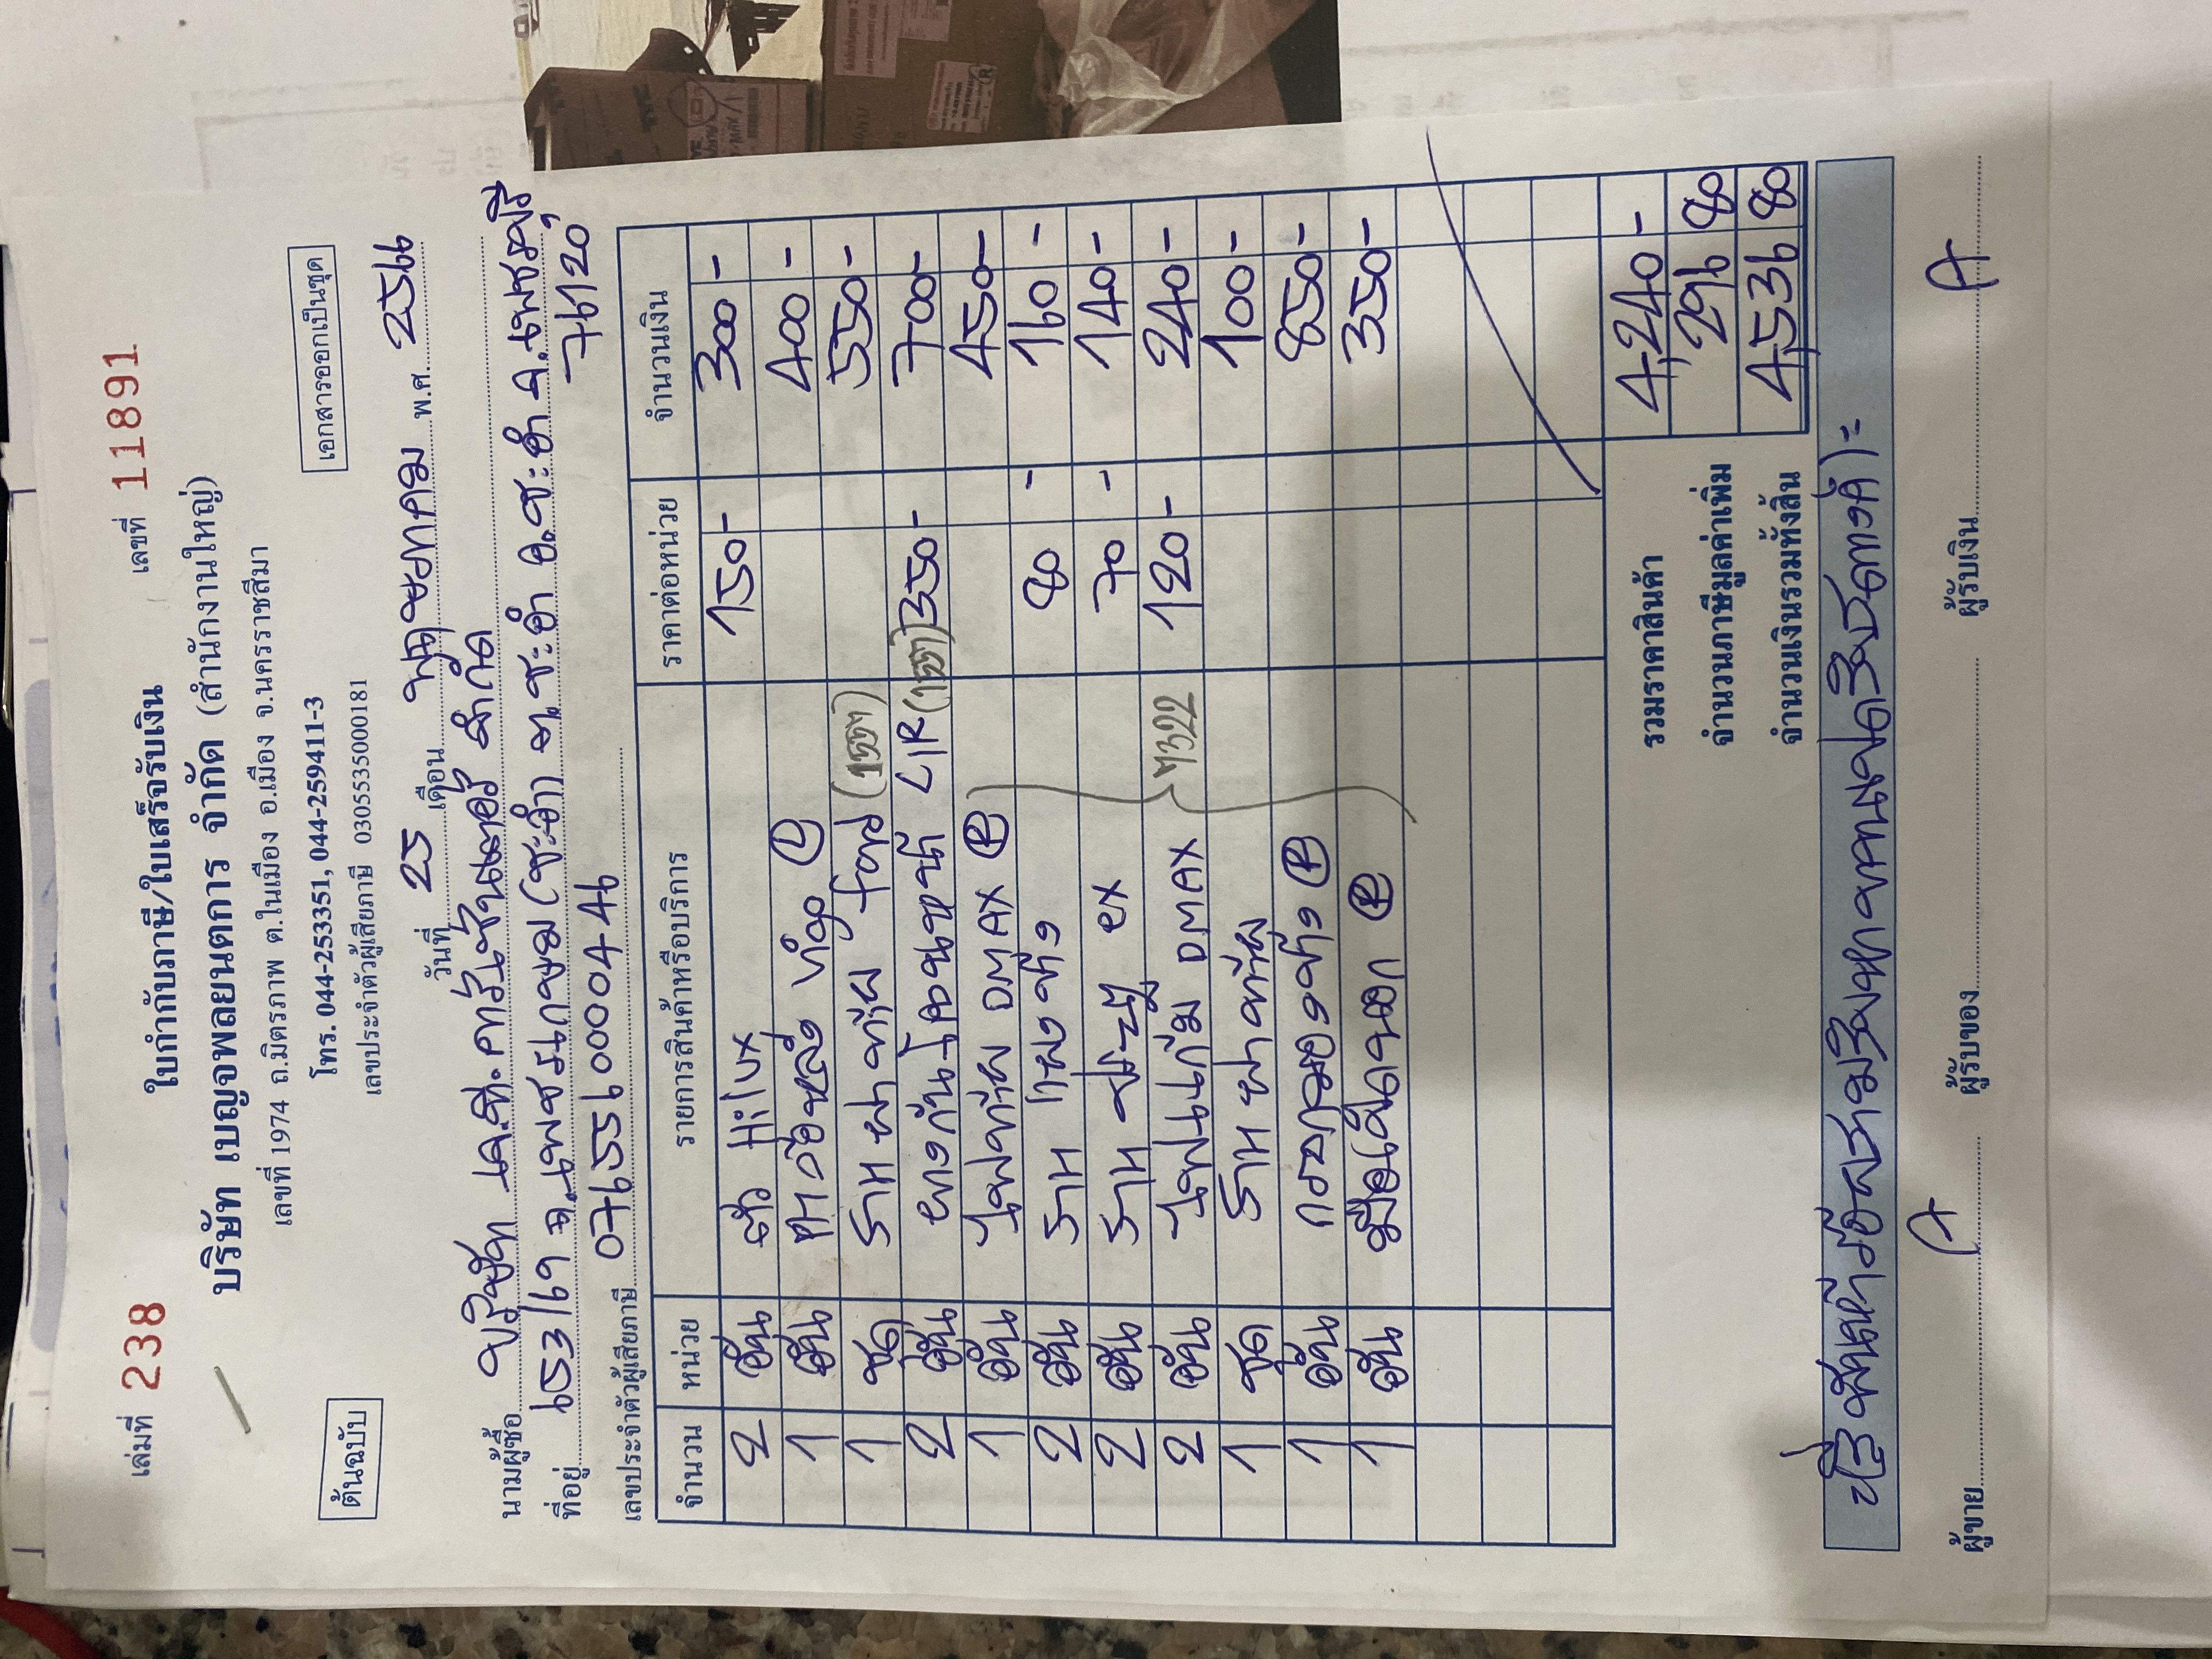 เล่มที่ 238 ใบกำกับภาษี/ใบเสร็จรับเงิน เลขที่ 11891
บริษัท เบญจพลยนตการ จำกัด (สำนักงานใหญ่)
เลขที่ 1974 ถ.มิตรภาพ ต.ในเมือง อ.เมือง จ.นครราชสีมา
ต้นฉบับ โทร. 044-253351, 044-259411-3 เอกสารออกเป็นชุด
เลขประจำตัวผู้เสียภาษี 0305535000181
วันที่ 25 เดือน พฤษภาคม พ.ศ. 2566
นามผู้ซื้อ บริษัท เค.ที. จำกัด
ที่อยู่ 653/69 ถ.เพชรเกษม (ชะอำ) ต.ชะอำ อ.ชะอำ จ.เพชรบุรี
76120
เลขประจำตัวผู้เสียภาษี 0765560000446
จำนวน หน่วย รายการสินค้าหรือบริการ ราคาต่อหน่วย จำนวนเงิน
2 อัน Hilux 150- 300 -
1 อัน L 400 -
1 ชุด ฝาท้าย Ford 550-
2 อัน CIR 350- 700-
1 อัน ไฟท้าย DMAX R 450-
2 อัน 80 - 160 -
2 อัน ex 70 - 140 -
2 อัน DMAX 4322 120- 240 -
1 ชุด ฝาท้าย 100 -
1 อัน กระจกมองข้าง R 850 -
1 อัน มือเปิดนอก R 350 -
รวมราคาสินค้า 4,240 -
จำนวนภาษีมูลค่าเพิ่ม 296 80
จำนวนเงินรวมทั้งสิ้น 4,536 80
(สี่พันห้าร้อยสามสิบหกบาทแปดสิบสตางค์) =
ผู้ขาย A ผู้รับของ ผู้รับเงิน A